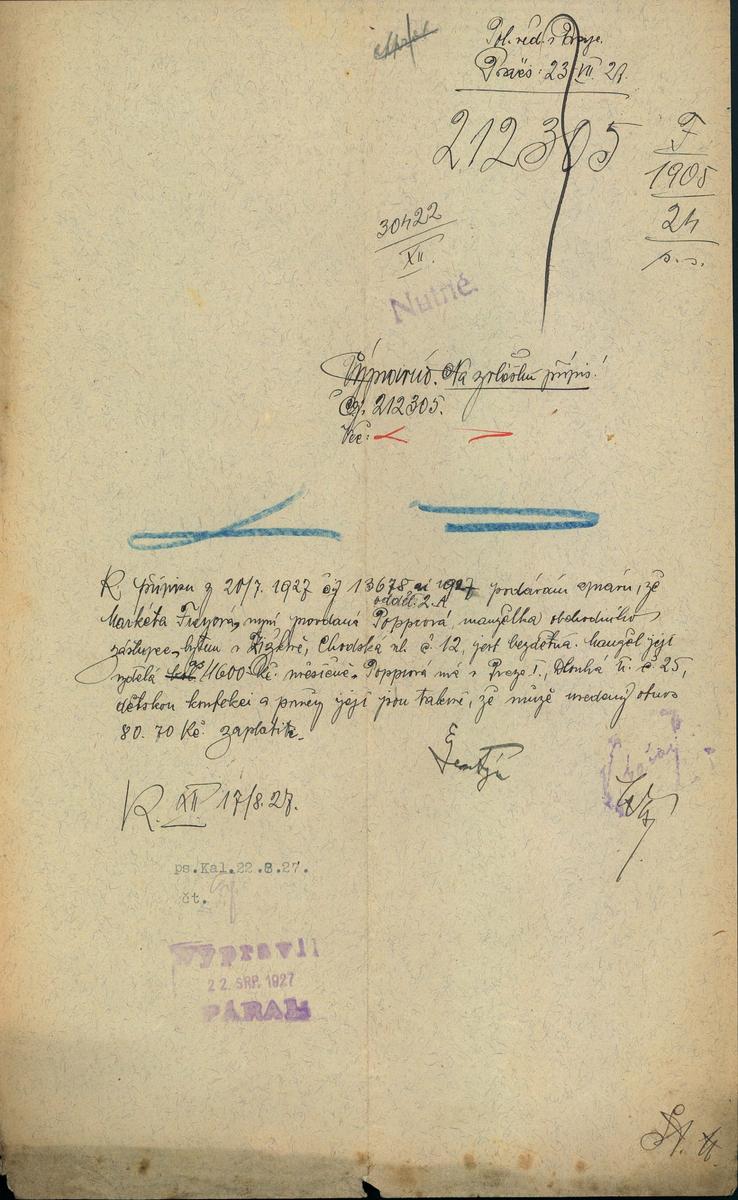 Pol. řed. v Praze.
Præs: 23. VII. 27.
212305
F
1905
24
p. s.
30422
XII.
Nutné.
Na zvláštní přípis!
Čj. 212305.
Věc:
K přípisu z 20/7. 1927 čj 13678 ai 1927 podávám zprávu, že
odděl. 2. A
Markéta nyní provdaná Popprová, manželka obchodního
zástupce, bytem v Žižkově, Chodská ul. č 12, jest bezdětná. Manžel její
vydělá 1600 Kč. měsíčně. Popprová má v Praze I., Dlouhá tř. č 25,
dětskou konfekci a příjmy její jsou takové, že může uvedený obnos
80.70 Kč zaplatit.
K. XII 17/8. 27.
ps.Kal.22.8.27.
čt.
Vypravil
22. SRP. 1927